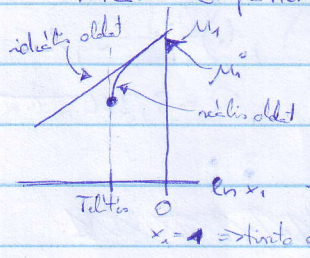 ideális oldat
μ₁
μ₁°
reális oldat
ln x₁
Telítés
0
x₁ = 1 => tiszta